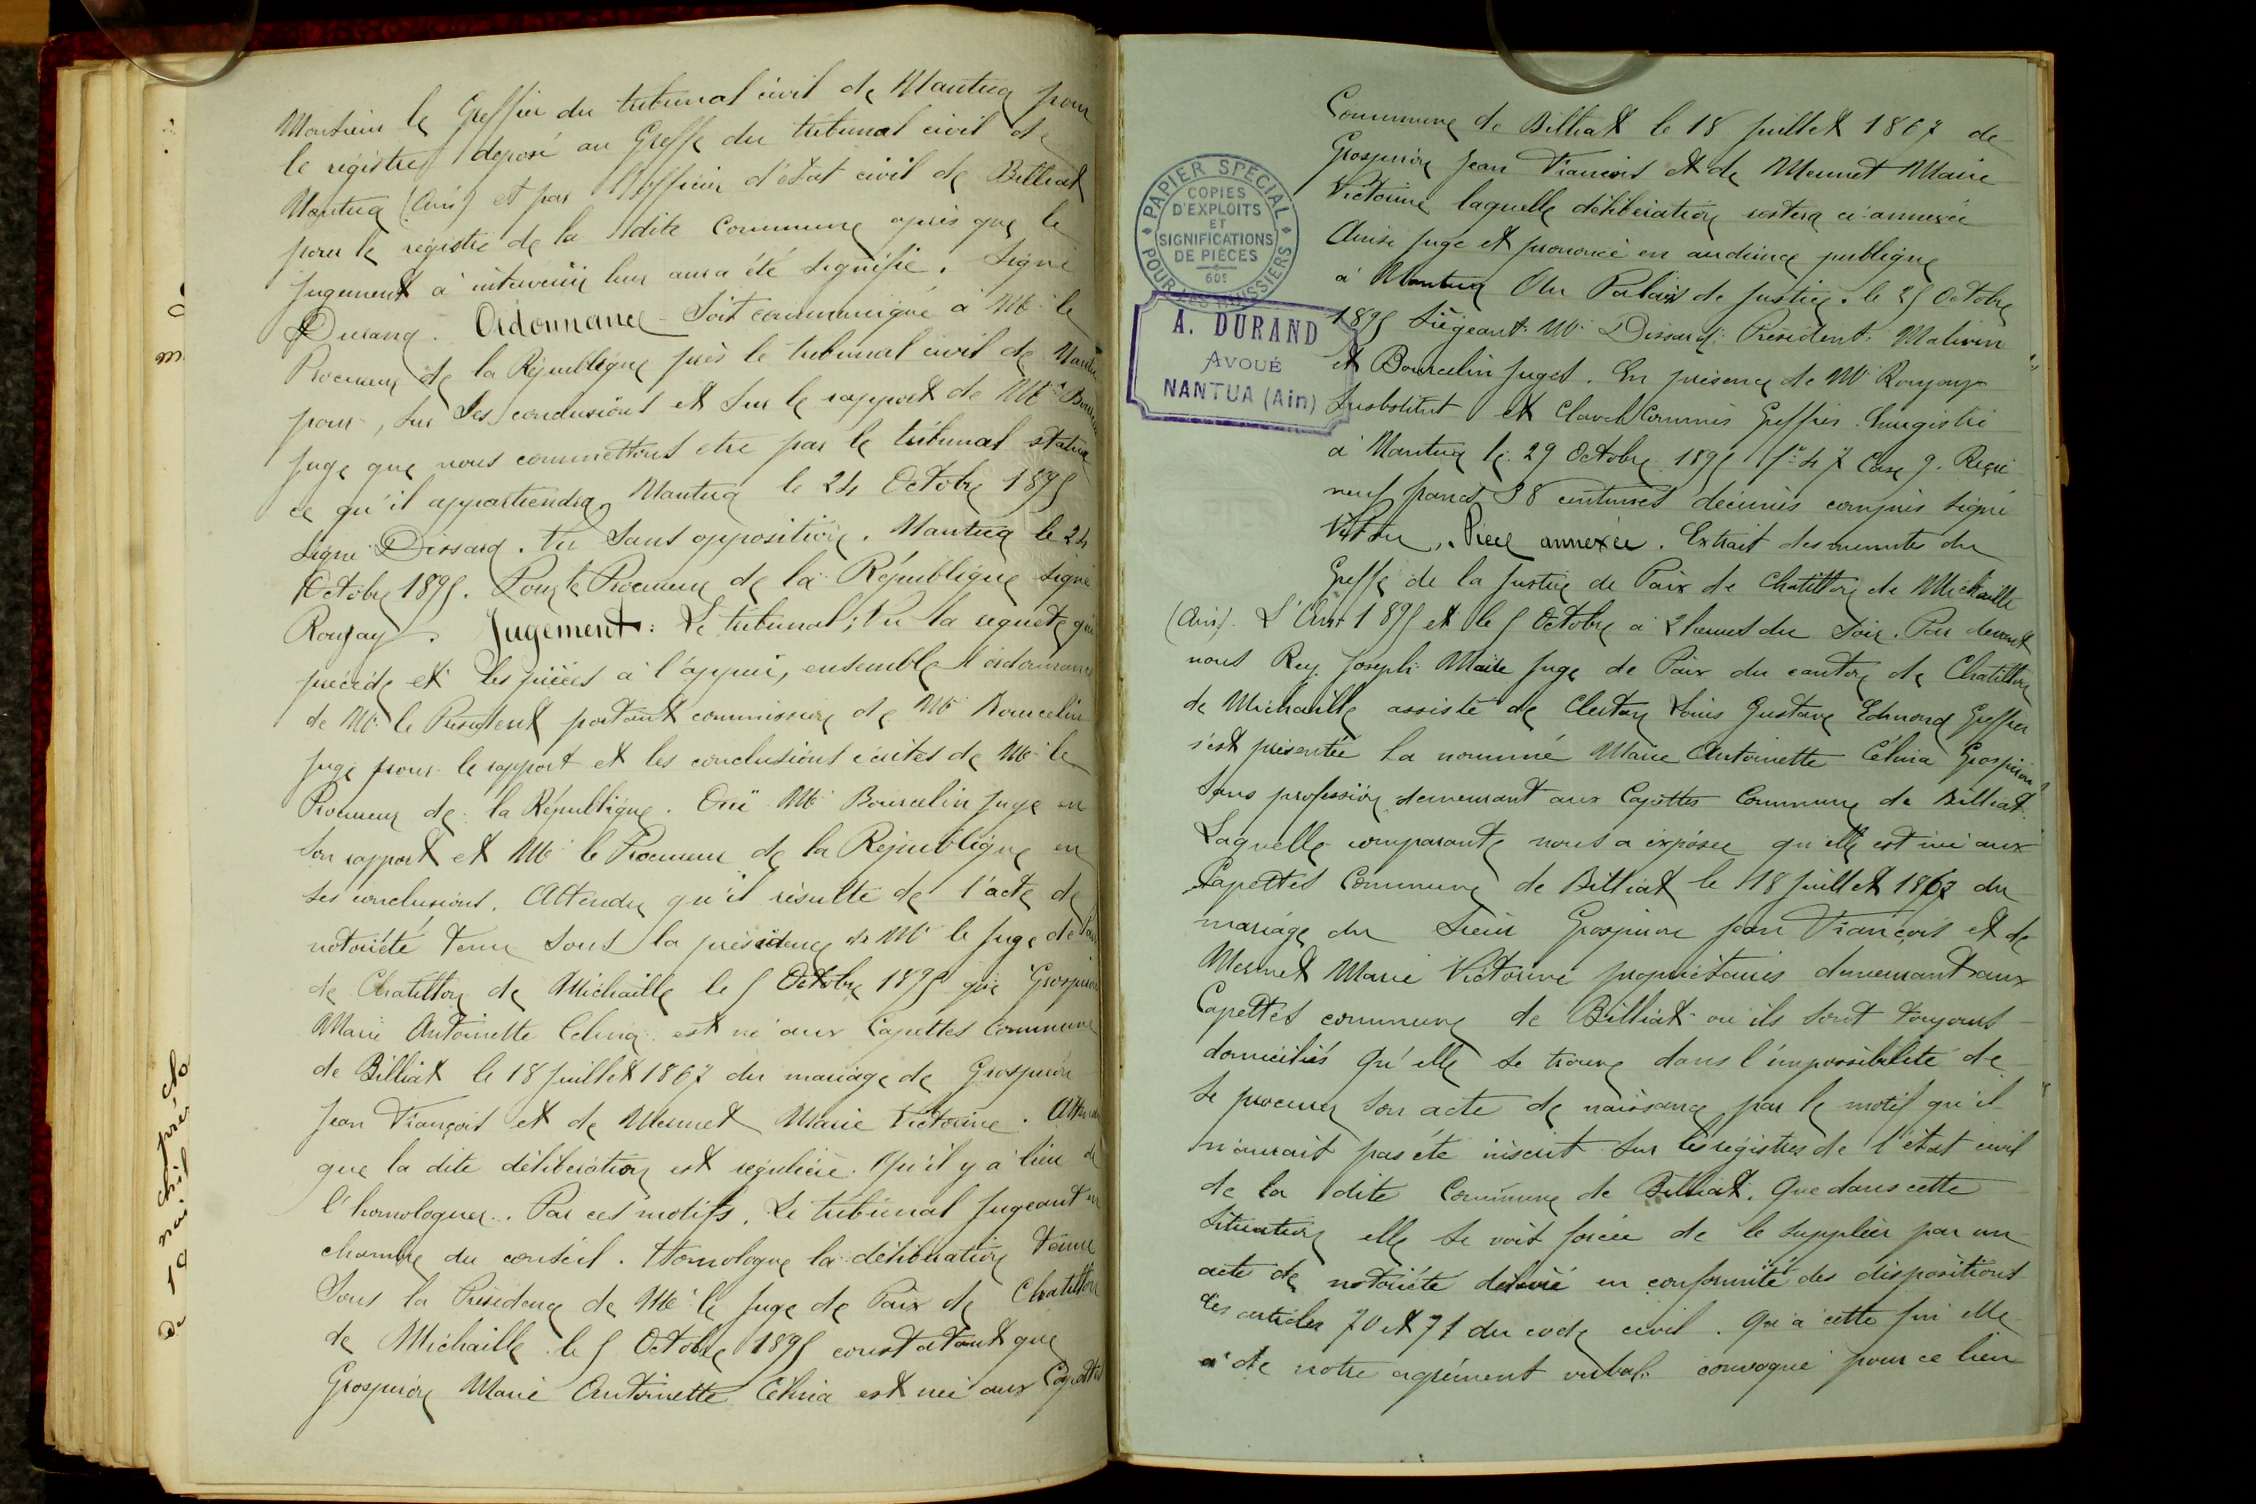 Monsieur le Greffier du tribunal civil de Nantua pour
le registre déposé au Greffe du tribunal civil de
Nantua (Ain) et par l'officier d'état civil de Billiat
pour le registre de la dite Commune après que le
jugement à intervenir leur aura été signifié. Signé
Durand. Ordonnance Soit communiqué à Mr le
Procureur de la République près le tribunal civil de
pour, sur ses conclusions et sur le rapport de Mr
juge que nous commettons etre par le tribunal statué
ce qu'il appartiendra Nantua le 24 Octobre 1895
Signé Dissard. Vu Sans opposition. Nantua le 24
Octobre 1895. Pour le Procureur de la République Signé
Roujay. Jugement: Le tribunal; Vu la requete qui
précède et les pièces à l'appui, ensemble l'ordonnance
de Mr le Président portant commission de Mr Bourcelin
juge pour le rapport et les conclusions écrites de Mr le
Procureur de la République. Oui Mr Bourcelin juge en
son rapport et Mr le Procureur de la République en
ses conclusions. Attendu qu'il résulte de l'acte de
notoriété tenu sous la présidence de Mr le Juge de Paix
de Chatillon de Michaille le 5 Octobre 1895 que Grospiron
Marie Antoinette Célina est né aux Capettes Commune
de Billiat le 18 juillet 1867 du mariage de Grospiron
Jean François et de Mermet Marie Victorine. Attendu
que la dite délibération est régulière. Qu'il y a lieu de
l'homologuer. Par ces motifs. Le tribunal jugeant en
chambre du conseil. Homologue la délibération tenue
Sous la Présidence de Mr le Juge de Paix de Chatillon
de Michaille le 5 Octobre 1895 constatant que
Grospiron Marie Antoinette Célina est née aux Capettes
Commune de Billiat le 18 juillet 1867 de
Grospiron Jean François et de Mermet Marie
Victorine laquelle délibération restera ci annexée
Ainsi jugé et prononcé en audience publique
à Nantua Au Palais de Justice. le 25 Octobre
1895 Siègeant: Mr Dissard: Président: Malivin
et Bourcelin juges. En présence de Mr Roujay
Susbstitut et Clavel Commis Greffier. Enregistré
à Nantua le 29 Octobre 1895 fo 47 Case 9. Reçu
neuf francs 38 centimes décimes compris signé
Pièce annexée. Extrait des minutes du
Greffe de la Justice de Paix de Chatillon de Michaille
(Ain). L'An 1895 et le 5 Octobre à 2 heures du Soir. Par devant
nous Rey Joseph Marie Juge de Paix du canton de Chatillon
de Michaille assisté de Louis Gustave Edmond Greffier
s'est présentée la nommé Marie Antoinette Célina Grospiron
Sans profession demeurant aux Capettes Commune de Billiat.
Laquelle comparante nous a exposée qu'elle est née aux
Capettes Commune de Billiat le 18 juillet 1867 du
mariage du Sieur Grospiron Jean François et de
Mermet Marie Victorine propriétaires demeurant aux
Capettes commune de Billiat ou ils sont toujours
domiciliés Qu'elle se trouve dans l'impossibilité de
se procurer son acte de naissance par le motif qu'il
n'aurait pas été inscrit sur les registres de l'état civil
de la dite Commune de Billiat. Que dans cette
situation elle se voit forcée de le suppléer par un
acte de notoriété délivré en conformité des dispositions
des articles 70 et 71 du code civil. Qu'à cette fin elle
a de notre agrément verbal convoqué pour ce lieu
PAPIER SPÉCIAL
POUR LES HUISSIERS
COPIES
D'EXPLOITS
ET
SIGNIFICATIONS
DE PIÈCES
60c
A. DURAND
AVOUÉ
NANTUA (Ain)